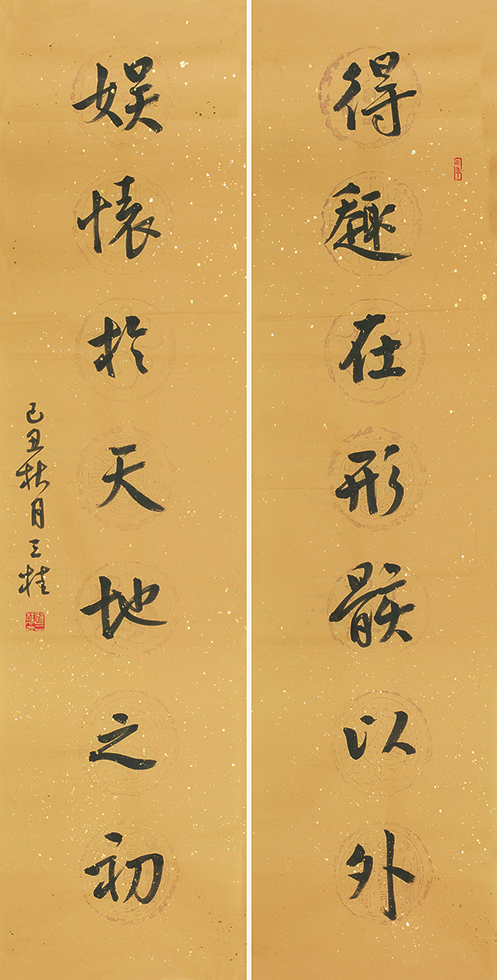 得趣在形骸以外
娱懷於天地之初
己丑秋月三桂